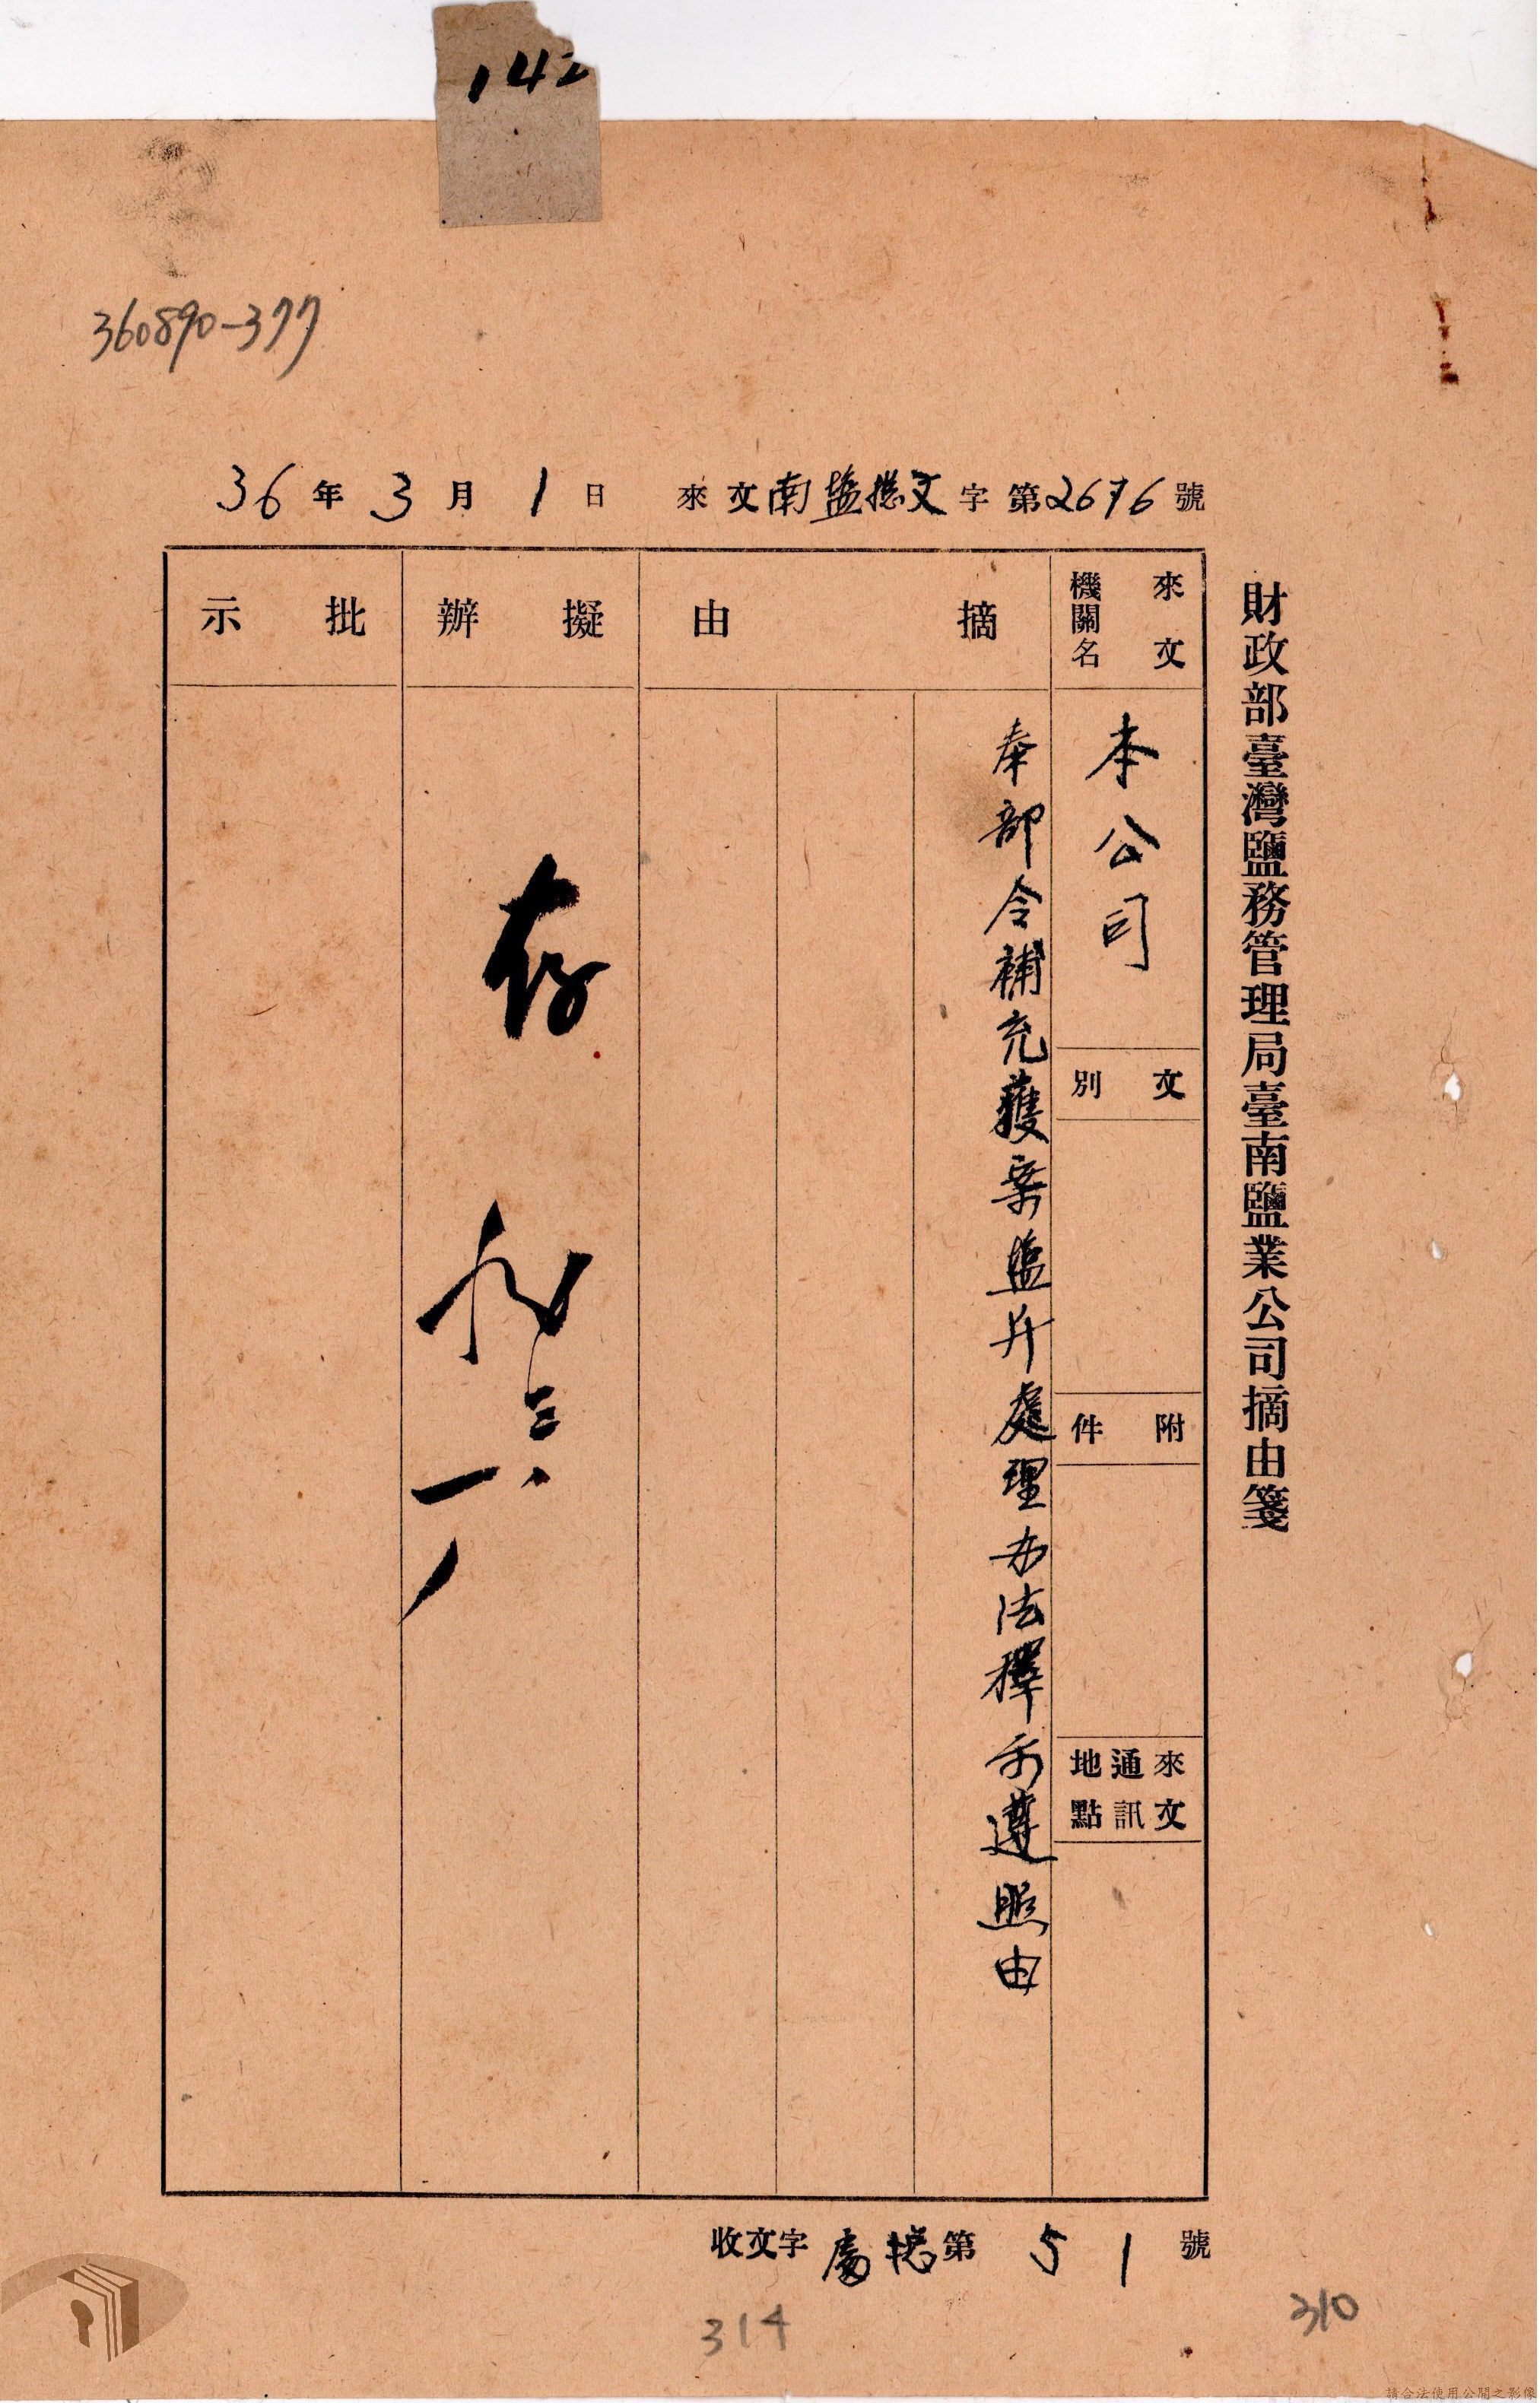 142
360890-377
36年3月1日 來文南塩總文字第2676號
財政部臺灣鹽務管理局臺南鹽業公司摘由箋
來文機關名
本公司
文別
附件
來文通訊地點
摘由
奉部令補充獲案塩斤處理办法釋示遵照由
擬辦
存
三、一
批示
收文字 總第51號
314
310
請合法使用公開之影像